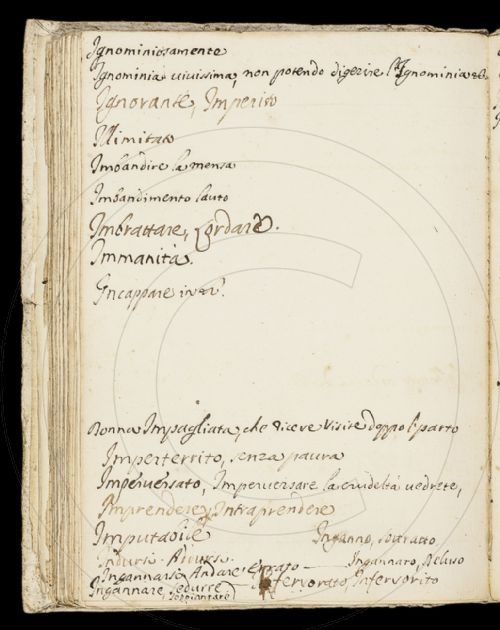 Ignominiosamente
Ignominia vivissima, non potendo digerire l'Ignominia
Ignorante, Imperito
Illimitato
Imbandire la mensa
Imbandimento lauto
Imbrattare, Lordare.
Immanità.
Incappare in
Donna Impagliata, che riceve visite doppo l parto
Imperterrito, senza paura
Imperversato, Imperversare la crudeltà vedrete,
Imprendere, Intraprendere
Imputabile Inganno, sottratto
Indursi. Ridursi.
Ingannarsi, Andare errato — Ingannato, Deluso
Ingannare, sedurre — Infervorato, Infervorito
soppiantare